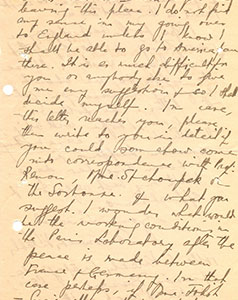 leaving this place. I do not find
any sense in my going over
to England unless I know I
shall be able to go to America from
there. It is so much difficult for
you or anybody else to give
me any suggestion & so I shall
decide myself. In case,
this letter reaches you, please,
then write to you in detail'd
you could somehow come
into correspondence with Prof.
Renou Mme. Stchoupak
the Sorbonne & what you
suggest. I wonder what would
be the working conditions in
the Paris Laboratory after the
peace is made between
France & Germany. In that
case perhaps, if